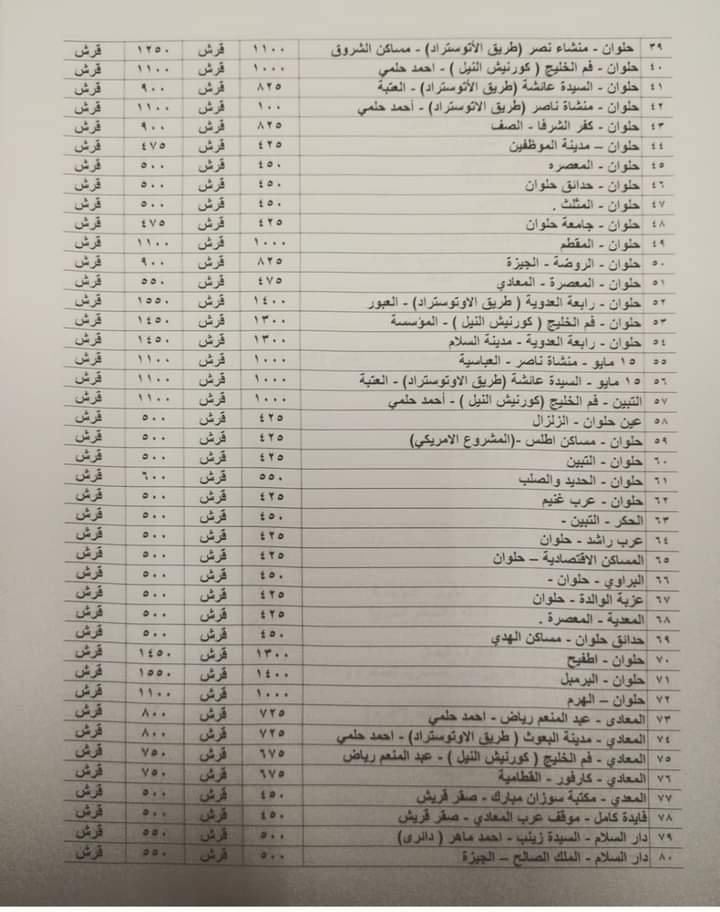 ٣٩ حلوان - منشاء نصر (طريق الأتوستراد) - مساكن الشروق ١١٠٠ قرش ١٢٥٠ قرش
٤٠ حلوان - فم الخليج ( كورنيش النيل ) - احمد حلمي ١٠٠٠ قرش ١١٠٠ قرش
٤١ حلوان - السيدة عائشة (طريق الأتوستراد) - العتبة ٨٢٥ قرش ٩٠٠ قرش
٤٢ حلوان - منشاة ناصر (طريق الاتوستراد) - أحمد حلمي ١٠٠ قرش ١١٠٠ قرش
٤٣ حلوان - كفر الشرفا - الصف ٨٢٥ قرش ٩٠٠ قرش
٤٤ حلوان – مدينة الموظفين ٤٢٥ قرش ٤٧٥ قرش
٤٥ حلوان - المعصره ٤٥٠ قرش ٥٠٠ قرش
٤٦ حلوان - حدائق حلوان ٤٥٠ قرش ٥٠٠ قرش
٤٧ حلوان - المثلث . ٤٥٠ قرش ٥٠٠ قرش
٤٨ حلوان - جامعة حلوان ٤٢٥ قرش ٤٧٥ قرش
٤٩ حلوان - المقطم ١٠٠٠ قرش ١١٠٠ قرش
٥٠ حلوان - الروضة - الجيزة ٨٢٥ قرش ٩٠٠ قرش
٥١ حلوان - المعصرة - المعادي ٤٧٥ قرش ٥٥٠ قرش
٥٢ حلوان - رابعة العدوية ( طريق الاوتوستراد) - العبور ١٤٠٠ قرش ١٥٥٠ قرش
٥٣ حلوان - فم الخليج ( كورنيش النيل ) - المؤسسة ١٣٠٠ قرش ١٤٥٠ قرش
٥٤ حلوان - رابعة العدوية - مدينة السلام ١٣٠٠ قرش ١٤٥٠ قرش
٥٥ ١٥ مايو - منشاة ناصر - العباسية ١٠٠٠ قرش ١١٠٠ قرش
٥٦ ١٥ مايو - السيدة عائشة (طريق الاوتوستراد) - العتبة ١٠٠٠ قرش ١١٠٠ قرش
٥٧ التبين - فم الخليج (كورنيش النيل ) - أحمد حلمي ١٠٠٠ قرش ١١٠٠ قرش
٥٨ عين حلوان - الزلزال ٤٢٥ قرش ٥٠٠ قرش
٥٩ حلوان - مساكن اطلس -(المشروع الامريكي) ٤٢٥ قرش ٥٠٠ قرش
٦٠ حلوان - التبين ٤٢٥ قرش ٥٠٠ قرش
٦١ حلوان - الحديد والصلب ٥٥٠ قرش ٦٠٠ قرش
٦٢ حلوان - عرب غنيم ٤٢٥ قرش ٥٠٠ قرش
٦٣ الحكر - التبين - ٤٥٠ قرش ٥٠٠ قرش
٦٤ عرب راشد - حلوان ٤٢٥ قرش ٥٠٠ قرش
٦٥ المساكن الاقتصادية – حلوان ٤٢٥ قرش ٥٠٠ قرش
٦٦ البراوي - حلوان - ٤٥٠ قرش ٥٠٠ قرش
٦٧ عزبة الوالدة - حلوان ٤٢٥ قرش ٥٠٠ قرش
٦٨ المعدية - المعصرة . ٤٢٥ قرش ٥٠٠ قرش
٦٩ حدائق حلوان - مساكن الهدي ٤٥٠ قرش ٥٠٠ قرش
٧٠ حلوان - اطفيح ١٣٠٠ قرش ١٤٥٠ قرش
٧١ حلوان - البرمبل ١٤٠٠ قرش ١٥٥٠ قرش
٧٢ حلوان – الهرم ١٠٠٠ قرش ١١٠٠ قرش
٧٣ المعادى - عبد المنعم رياض - احمد حلمي ٧٢٥ قرش ٨٠٠ قرش
٧٤ المعادي - مدينة البعوث ( طريق الاوتوستراد) - احمد حلمي ٧٢٥ قرش ٨٠٠ قرش
٧٥ المعادي - فم الخليج ( كورنيش النيل ) - عبد المنعم رياض ٦٧٥ قرش ٧٥٠ قرش
٧٦ المعادي - كارفور - القطامية ٦٧٥ قرش ٧٥٠ قرش
٧٧ المعدي - مكتبة سوزان مبارك - صقر قريش ٤٥٠ قرش ٥٠٠ قرش
٧٨ فايدة كامل - موقف عرب المعادي - صقر قريش ٤٥٠ قرش ٥٠٠ قرش
٧٩ دار السلام - السيدة زينب - احمد ماهر ( دائرى) ٥٠٠ قرش ٥٥٠ قرش
٨٠ دار السلام - الملك الصالح – الجيزة ٥٠٠ قرش ٥٥٠ قرش